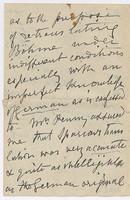 as to the purpose
of
Böhme under
indifferent conditions
especially with an
imperfect knowledge
of German as is
Mr Penny assured
me that Sparrow's trans
lation was very accurate
& quite as intelligible
as the German original